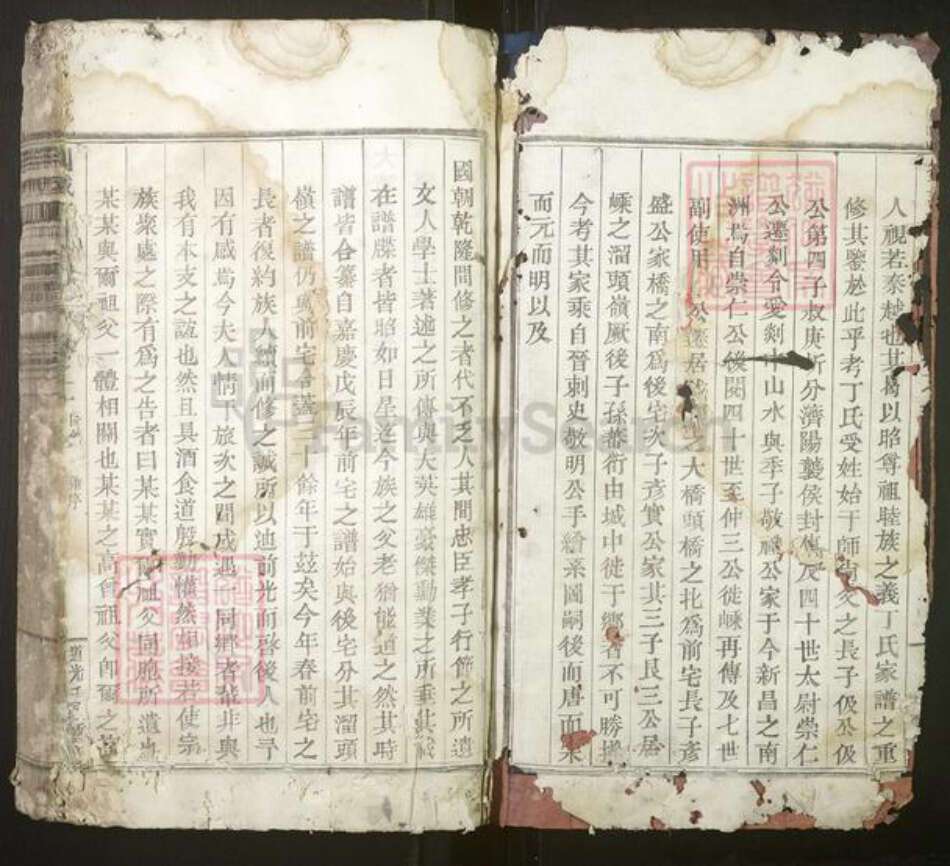 人視若秦越也其曷以昭尊祖睦族之義丁氏家譜之重
修其鑒於此乎考丁氏受姓始于師尚父之長子伋公伋
公第四子叔庚所分濟陽襲侯封傳及四十世太尉崇仁
公遷剡令愛剡中山水與季子敬禮公家于今新昌之南
洲焉自崇仁公後閱四十世至仲三公徙嵊再傳及七世
副使用 公遷居 之大橋頭橋之北為前宅長子彥
盛公家橋之南為後宅次子彥實公家其三子艮三公居
嵊之溜頭嶺厥後子孫蕃衍由城中徙于鄉者不可勝
今考其家乘自晉刺史敬明公手繪系圖嗣後而唐而宋
而元而明以及
國朝乾隆間修之者代不乏人其間忠臣孝子行節之所遺
文人學士著述之所傳與夫英雄豪傑勳業之所垂其載
在譜牒者皆昭如日星迄今族之父老猶能道之然其時
譜皆合纂自嘉慶戊辰年前宅之譜始與後宅分其溜頭
嶺之譜仍與前宅合蓋三十餘年于茲矣今年春前宅之
長者復約族人續而修之誠所以迪前光而啓後人也予
因有感焉今夫人情于旅次之間或遇一同鄉者雖非與
我有本支之誼也然且具酒食道殷勤懽然相接若使宗
族聚處之際有為之告者曰某某實爾祖父同胞所遺也
某某與爾祖父一體相關也某某之高曾祖父即爾之高
FamilySearch